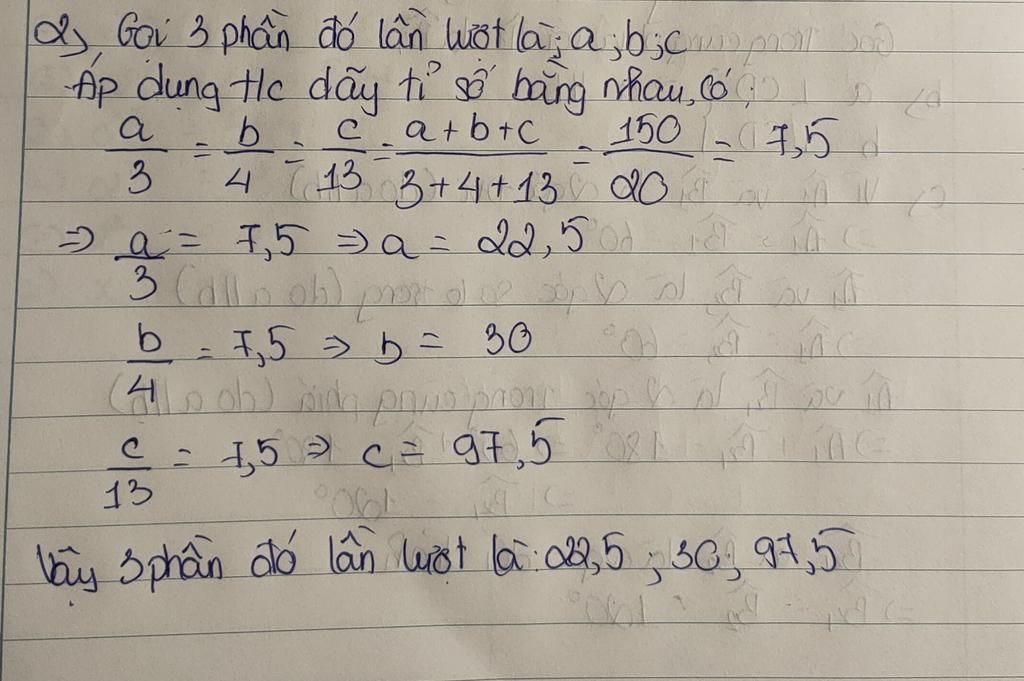 2, Gọi 3 phần đó lần lượt là; a; b; c
Áp dụng t/c dãy tỉ số bằng nhau, có:
a/3 = b/4 = c/13 = a+b+c/3+4+13 = 150/20 = 7,5
⇒ a/3 = 7,5 ⇒ a = 22,5
b/4 = 7,5 ⇒ b = 30
c/13 = 7,5 ⇒ c = 97,5
Vậy 3 phần đó lần lượt là: 22,5 ; 30; 97,5